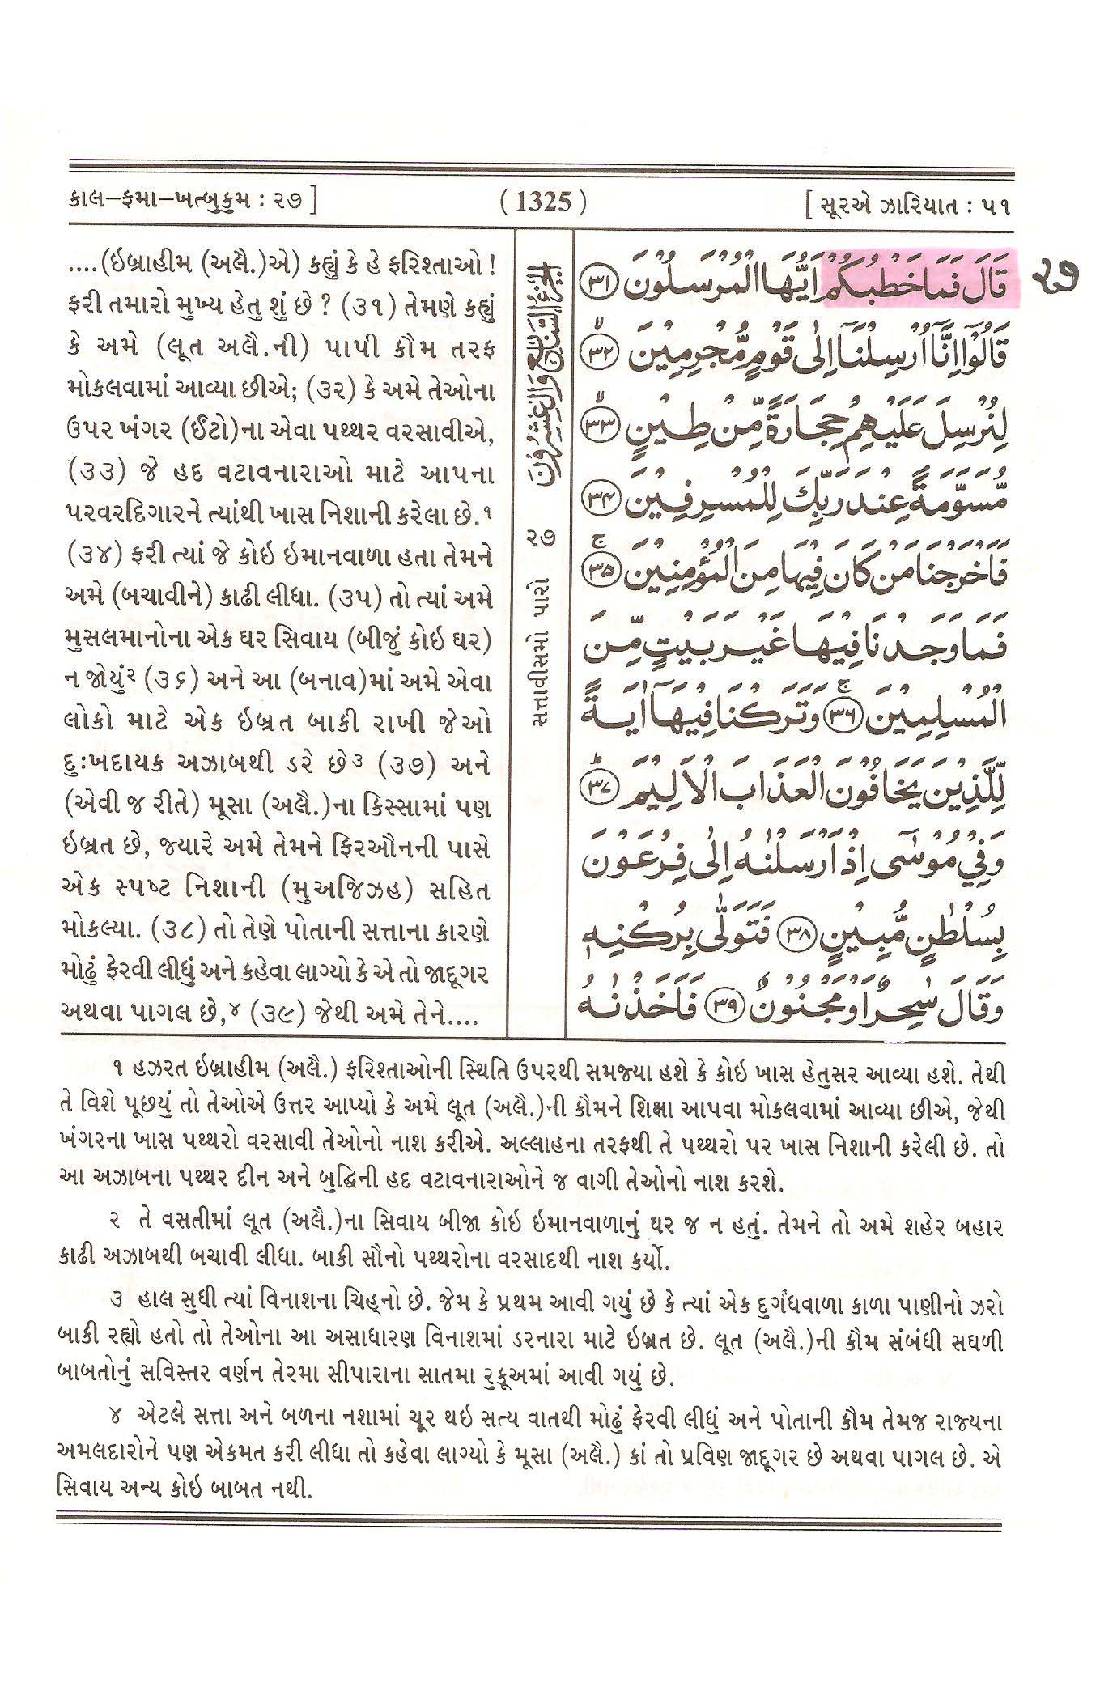 કાલ-ફમા-ખત્બુકુમ : ૨૭ ]
( 1325 )
[ સૂરએ ઝારિયાત : ૫૧
....(ઇબ્રાહીમ (અલૈ.)એ) કહ્યું કે હે ફરિશ્તાઓ !
ફરી તમારો મુખ્ય હેતુ શું છે ? (૩૧) તેમણે કહ્યું
કે અમે (લૂત અલૈ.ની) પાપી કૌમ તરફ
મોકલવામાં આવ્યા છીએ; (૩૨) કે અમે તેઓના
ઉપર ખંગર (ઈંટો)ના એવા પથ્થર વરસાવીએ,
(૩૩) જે હદ વટાવનારાઓ માટે આપના
પરવરદિગારને ત્યાંથી ખાસ નિશાની કરેલા છે.૧
(૩૪) ફરી ત્યાં જે કોઇ ઇમાનવાળા હતા તેમને
અમે (બચાવીને) કાઢી લીધા. (૩૫) તો ત્યાં અમે
મુસલમાનોના એક ઘર સિવાય (બીજું કોઇ ઘર)
ન જોયું૨ (૩૬) અને આ (બનાવ)માં અમે એવા
લોકો માટે એક ઇબ્રત બાકી રાખી જેઓ
દુઃખદાયક અઝાબથી ડરે છે૩ (૩૭) અને
(એવી જ રીતે) મૂસા (અલૈ.)ના કિસ્સામાં પણ
ઇબ્રત છે, જ્યારે અમે તેમને ફિરઔનની પાસે
એક સ્પષ્ટ નિશાની (મુઅજિઝહ) સહિત
મોકલ્યા. (૩૮) તો તેણે પોતાની સત્તાના કારણે
મોઢું ફેરવી લીધું અને કહેવા લાગ્યો કે એ તો જાદૂગર
અથવા પાગલ છે,૪ (૩૯) જેથી અમે તેને....
الجزء السابع والعشرون
૨૭
સત્તાવીસમો પારો
قَالَ فَمَا خَطْبُكُمْ اَيُّهَا الْمُرْسَلُوْنَ ﴿۳۱﴾
૨૭
قَالُوْۤا اِنَّاۤ اُرْسِلْنَاۤ اِلٰى قَوْمٍ مُّجْرِمِيْنَ ﴿۳۲﴾
لِنُرْسِلَ عَلَيْهِمْ حِجَارَةً مِّنْ طِيْنٍ ﴿۳۳﴾
مُّسَوَّمَةً عِنْدَ رَبِّكَ لِلْمُسْرِفِيْنَ ﴿۳۴﴾
فَاَخْرَجْنَا مَنْ كَانَ فِيْهَا مِنَ الْمُؤْمِنِيْنَ ﴿۳۵﴾
فَمَا وَجَدْنَا فِيْهَا غَيْرَ بَيْتٍ مِّنَ
الْمُسْلِمِيْنَ ﴿۳۶﴾ وَتَرَكْنَا فِيْهَاۤ اٰيَةً
لِّلَّذِيْنَ يَخَافُوْنَ الْعَذَابَ الْاَلِيْمَ ﴿۳۷﴾
وَفِيْ مُوْسٰۤى اِذْ اَرْسَلْنٰهُ اِلٰى فِرْعَوْنَ
بِسُلْطٰنٍ مُّبِيْنٍ ﴿۳۸﴾ فَتَوَلّٰى بِرُكْنِهٖ
وَقَالَ سٰحِرٌ اَوْ مَجْنُوْنٌ ﴿۳۹﴾ فَاَخَذْنٰهُ
૧ હઝરત ઇબ્રાહીમ (અલૈ.) ફરિશ્તાઓની સ્થિતિ ઉપરથી સમજ્યા હશે કે કોઇ ખાસ હેતુસર આવ્યા હશે. તેથી
તે વિશે પૂછયું તો તેઓએ ઉત્તર આપ્યો કે અમે લૂત (અલૈ.)ની કૌમને શિક્ષા આપવા મોકલવામાં આવ્યા છીએ, જેથી
ખંગરના ખાસ પથ્થરો વરસાવી તેઓનો નાશ કરીએ. અલ્લાહના તરફથી તે પથ્થરો પર ખાસ નિશાની કરેલી છે. તો
આ અઝાબના પથ્થર દીન અને બુદ્ધિની હદ વટાવનારાઓને જ વાગી તેઓનો નાશ કરશે.
૨ તે વસતીમાં લૂત (અલૈ.)ના સિવાય બીજા કોઇ ઇમાનવાળાનું ઘર જ ન હતું. તેમને તો અમે શહેર બહાર
કાઢી અઝાબથી બચાવી લીધા. બાકી સૌનો પથ્થરોના વરસાદથી નાશ કર્યો.
૩ હાલ સુધી ત્યાં વિનાશના ચિહ્નો છે. જેમ કે પ્રથમ આવી ગયું છે કે ત્યાં એક દુર્ગંધવાળા કાળા પાણીનો ઝરો
બાકી રહ્યો હતો તો તેઓના આ અસાધારણ વિનાશમાં ડરનારા માટે ઇબ્રત છે. લૂત (અલૈ.)ની કૌમ સંબંધી સઘળી
બાબતોનું સવિસ્તર વર્ણન તેરમા સીપારાના સાતમા રુકૂઅમાં આવી ગયું છે.
૪ એટલે સત્તા અને બળના નશામાં ચૂર થઇ સત્ય વાતથી મોઢું ફેરવી લીધું અને પોતાની કૌમ તેમજ રાજ્યના
અમલદારોને પણ એકમત કરી લીધા તો કહેવા લાગ્યો કે મૂસા (અલૈ.) કાં તો પ્રવિણ જાદૂગર છે અથવા પાગલ છે. એ
સિવાય અન્ય કોઇ બાબત નથી.